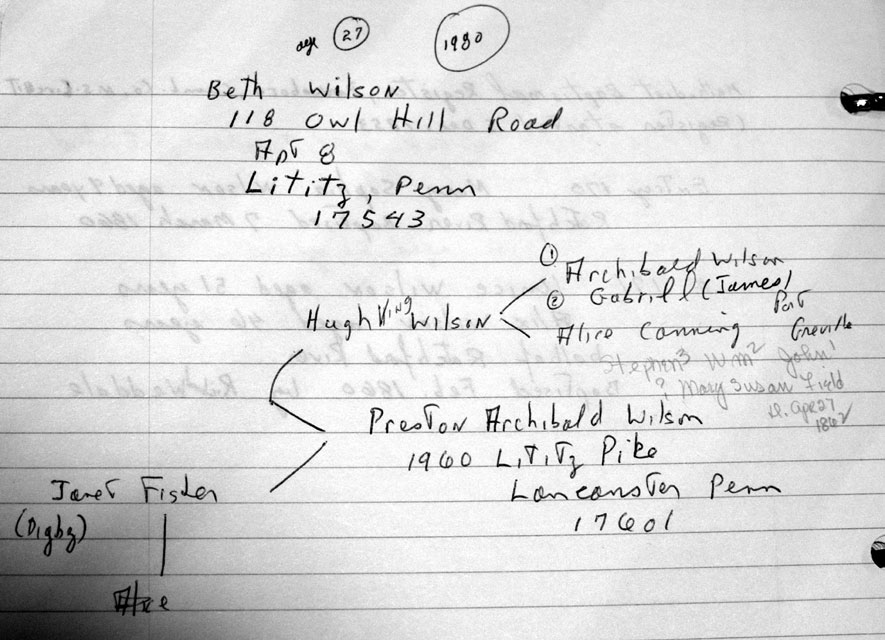 age 27 1980
Beth Wilson
118 Owl Hill Road
Apt 8
Lititz, Penn
17543
① Archibald Wilson
② Gabriel (James)
Port Greville
Hugh King Wilson
Alice Canning
Stephen³ Wm² John¹
? Mary Susan Field
d. Apr 27
1862
Preston Archibald Wilson
1960 Lititz Pike
Lancanster Penn
17601
Janet Fisher
(Digby)